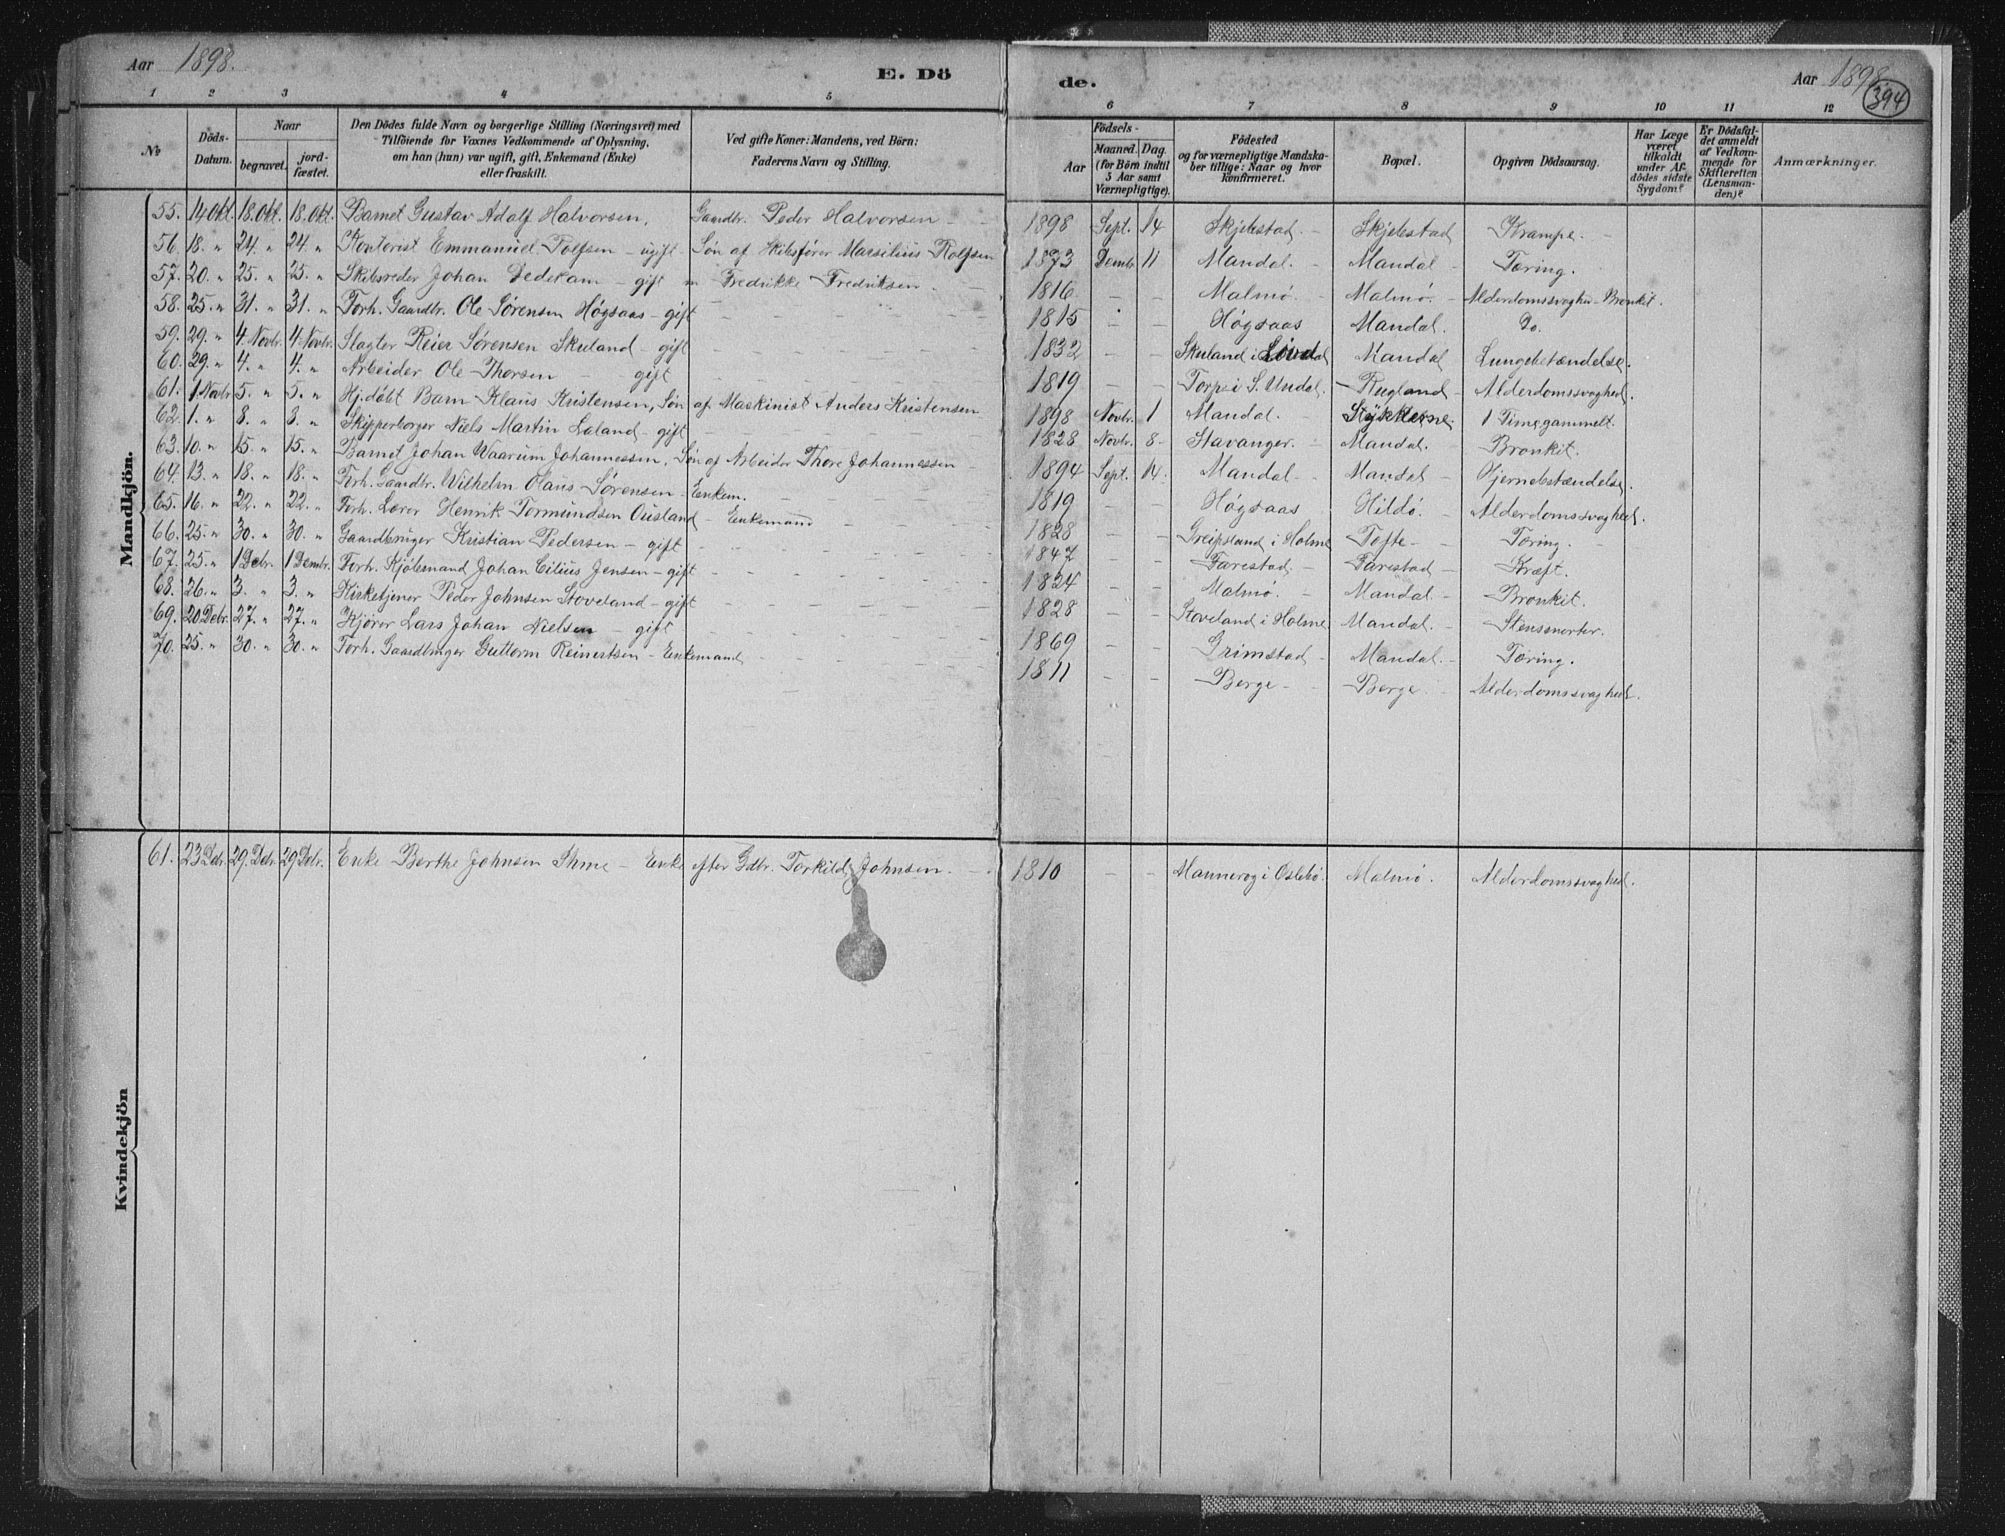 Aar 1898.
E. Dö
de.
Aar 1898
394
1 2 3 4 5
6 7 8 9 10 11 12
No
Döds-Datum.
Naar
begravet.
jord-fæstet.
Den Dödes fulde Navn og borgerlige Stilling (Næringsvei) med
Tilföiende for Voxnes Vedkommende af Oplysning,
om han (hun) var ugift, gift, Enkemand (Enke)
eller fraskilt.
Ved gifte Koner: Mandens, ved Börn:
Faderens Navn og Stilling.
Födsels-
Aar
Maaned. Dag.
(for Börn indtil
5 Aar samt
Værnepligtige).
Födested
og for værnepligtige Mandska-
ber tillige: Naar og hvor
konfirmeret.
Bopæl.
Opgiven Dödsaarsag.
Har Læge
været
tilkaldt
under Af-
dödes sidste
Sygdom?
Er Dödsfal-
det anmeldt
af Vedkom-
mende for
Skifteretten
(Lensman-
den)?
Anmærkninger.
Mandkjön.
55. 14 Okt. 18. Okt. 18. Okt. Barnet Gustav Adolf Halvorsen, Gaardbr. Peder Halvorsen — 1898 Sept. 14 Skjebstad. — Skjebstad Krampe. —
56. 18. „ 24. „ 24. „ Kontorist Emmanuel Rolfsen — ugift Søn af Skibsfører Marsilius Rolfsen 1873 Dembr 11 Mandal. — Mandal — Tæring.
57. 20. „ 25. „ 25. „ Skibsreder Johan Dedekam — gift m Fredrikke Fredriksen. — 1816 — — Malmø. — Malmø. — Alderdomssvaghed - Bronkit.
58. 25. „ 31. „ 31. „ Forh. Gaardbr. Ole Sørensen Høgsaas — gift — 1815 — — Høgsaas Mandal. Do.
59. 29. „ 4. Novbr. 4. Novbr. Slagter Reier Sørensen Skuland — gift — 1832 — — Skuland i Mandal Lungebetændelse.
60. 29. „ 4. „ 4. „ Arbeider Ole Thorsen — gift — 1819 — — Torpe i S. Undal. — Rugland — Alderdomssvaghed.
61. 1 Novbr 5. „ 5. „ Hj.døbt Barn Klaus Kristensen, Søn af Maskinist Anders Kristensen 1898 Novbr. 1 Mandal. — 1 Time gammelt.
62. 1. „ 8. „ 8. „ Skipperborger Niels Martin Laland — gift — 1828 Novbr. 8 — Stavanger. — Mandal. — Bronkit.
63. 10. „ 15. „ 15. „ Barnet Johan Waarum Johannessen, Søn af Arbeider Thore Johannessen — 1894 Sept. Mandal — Mandal — Hjernebetændelse.
64. 13. „ 18. „ 18. „ Forh. Gaardbr. Wilhelm Olaus Sørensen — Enkem. — 1819 — — Høgsaas Hildø. — Alderdomssvaghed.
65. 16. „ 22. „ 22. „ Forh. Lærer Henrik Tormundsen Ousland — Enkemand — 1828 — — Greipsland i Holme Tofte — Tæring. —
66. 25. „ 30. „ 30. „ Gaardbruger Kristian Pedersen — gift — 1847 — — Færestad — Færestad — Kræft.
67. 25. „ 1 Debr. 1 Dembr. Forh. Kjøbmand Johan Cilius Jensen — gift — 1824 — — Malmø. — Mandal — Bronkit.
68. 26. „ 3. „ 3. „ Kirketjener Peder Johnsen Stoveland — gift — 1828 — — Stoveland i Holme Mandal. — Stensmerter.
69. 20 Debr. 27. „ 27. „ Kjører Lars Johan Nielsen — gift — 1869 — — Grimstad — Mandal. — Tæring.
70. 25. „ 30. „ 30. „ Forh. Gaardbruger Guttorm Reinertsen — Enkemand — 1811 — — Berge — Berge — Alderdomssvaghed.
Kvindekjön
61. 23 Debr. 29. Debr. 29 Debr. Enke Berthe Johnsen Ihme — Enke efter Gdbr. Torkild Johnsen. — 1810 — — i Øslebø. Malmø. Alderdomssvaghed.